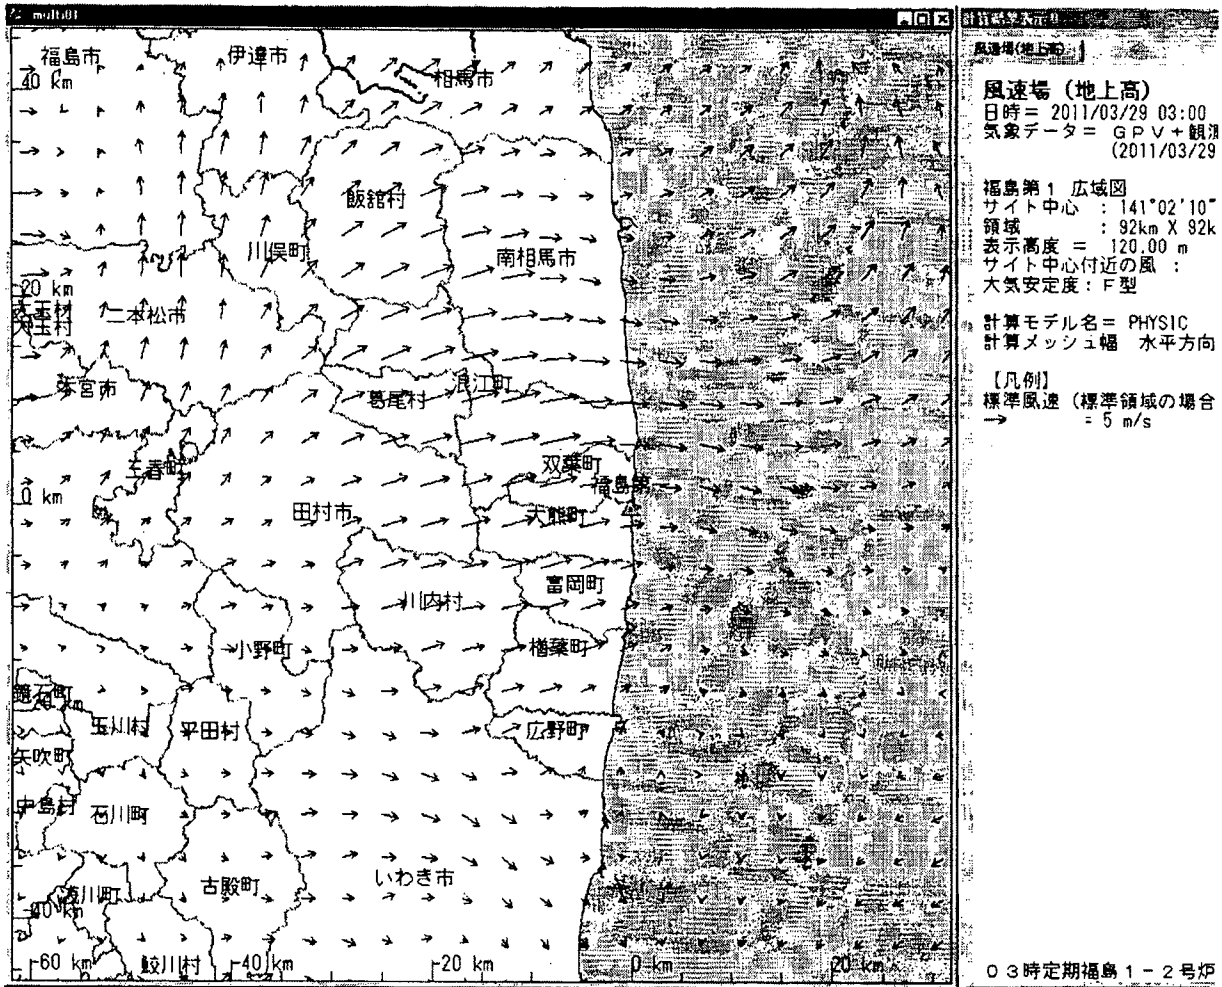 multi01
福島市
伊達市
相馬市
40 km
飯舘村
川俣町
南相馬市
20 km
大玉村
二本松市
本宮市
葛尾村
浪江町
三春町
双葉町
福島第一
0 km
田村市
大熊町
富岡町
川内村
小野町
楢葉町
鏡石町
玉川村
平田村
広野町
矢吹町
中島村
石川町
古殿町
いわき市
浅川町
-40 km
鮫川村
-60 km
-40 km
-20 km
0 km
20 km
計算結果表示
風速場(地上高)
風速場 (地上高)
日時= 2011/03/29 03:00
気象データ= GPV+観測
(2011/03/29
福島第1 広域図
サイト中心 : 141°02'10"
領域 : 92km X 92k
表示高度 = 120.00 m
サイト中心付近の風 :
大気安定度:F型
計算モデル名= PHYSIC
計算メッシュ幅 水平方向
【凡例】
標準風速 (標準領域の場合
→ = 5 m/s
03時定期福島1-2号炉